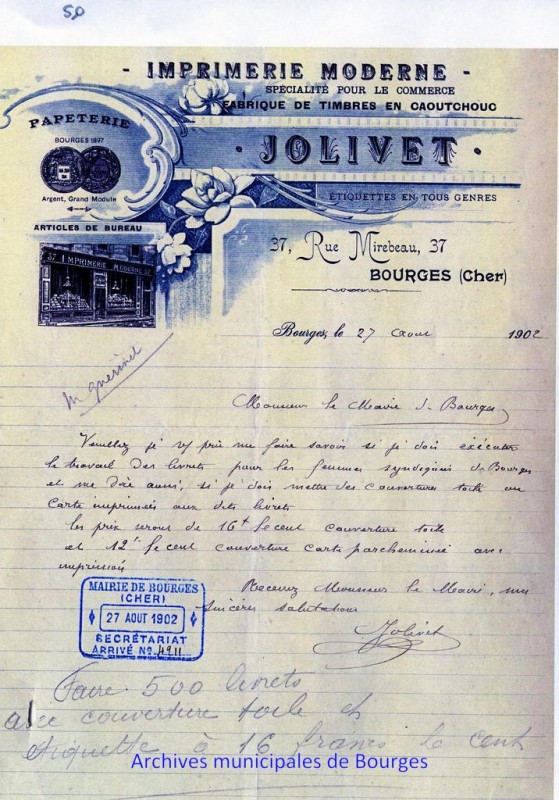 50
- IMPRIMERIE MODERNE -
SPÉCIALITÉ POUR LE COMMERCE
FABRIQUE DE TIMBRES EN CAOUTCHOUC
PAPETERIE
BOURGES 1897
· JOLIVET ·
Argent, Grand Module
ÉTIQUETTES EN TOUS GENRES
ARTICLES DE BUREAU
37 IMPRIMERIE MODERNE 37
37, Rue Mirebeau, 37
BOURGES (Cher)
Bourges, le 27 Aout 1902
M Guerinet
Monsieur le Maire d Bourges
Veuillez je v/ prie me faire savoir si je dois exécuter
le travail des livrets pour les femmes syndiquées d Bourges
et me dire aussi, si je dois mettre des couvertures toile ou
carte imprimées aux dits livrets
les prix serons de 16f le cent couverture toile
et 12f le cent couverture carte parcheminé avec
impression
Recevez Monsieur le Maire, mes
sincères salutations
Jolivet
MAIRIE DE BOURGES
(CHER)
27 AOUT 1902
SECRÉTARIAT
ARRIVÉ No 4911
Faire 500 livrets
avec couverture toile et
étiquette à 16 francs le cent
Archives municipales de Bourges